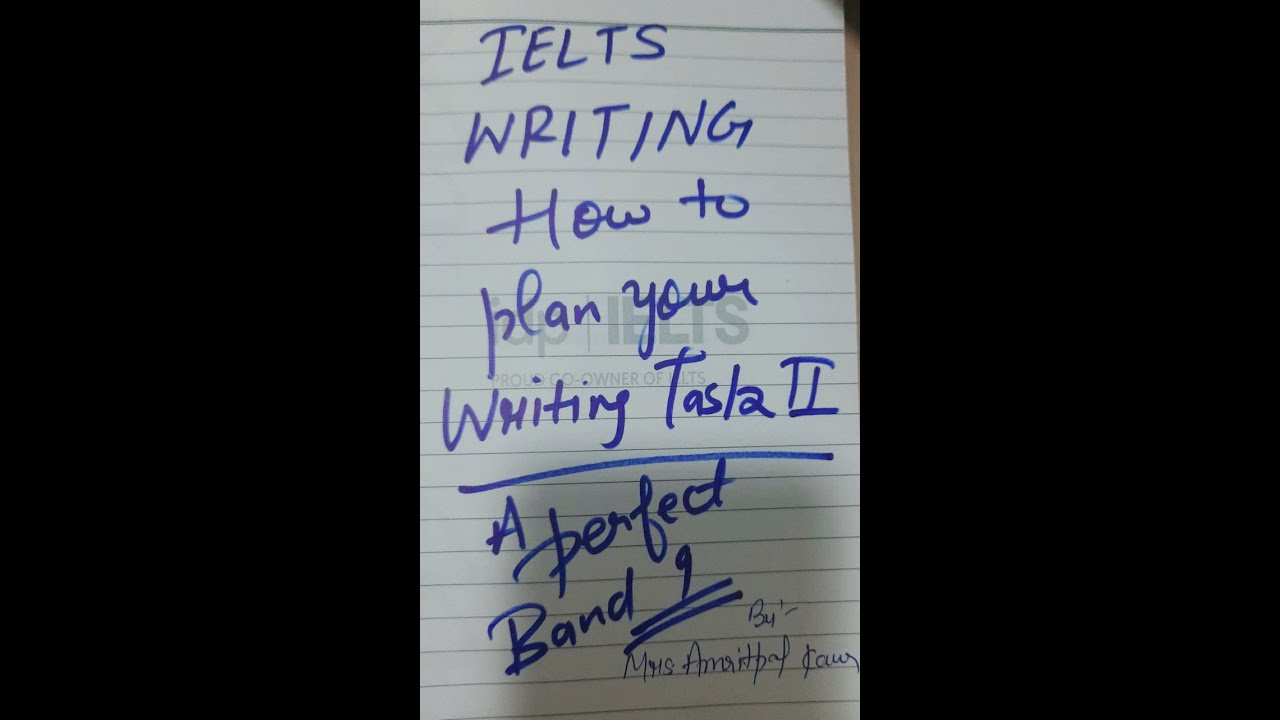 IELTS
WRITING
How to
plan your
idp | IELTS
PROUD CO-OWNER OF IELTS
Writing Task II
A perfect
Band 9
By:-
Mrs Amritpal Kaur